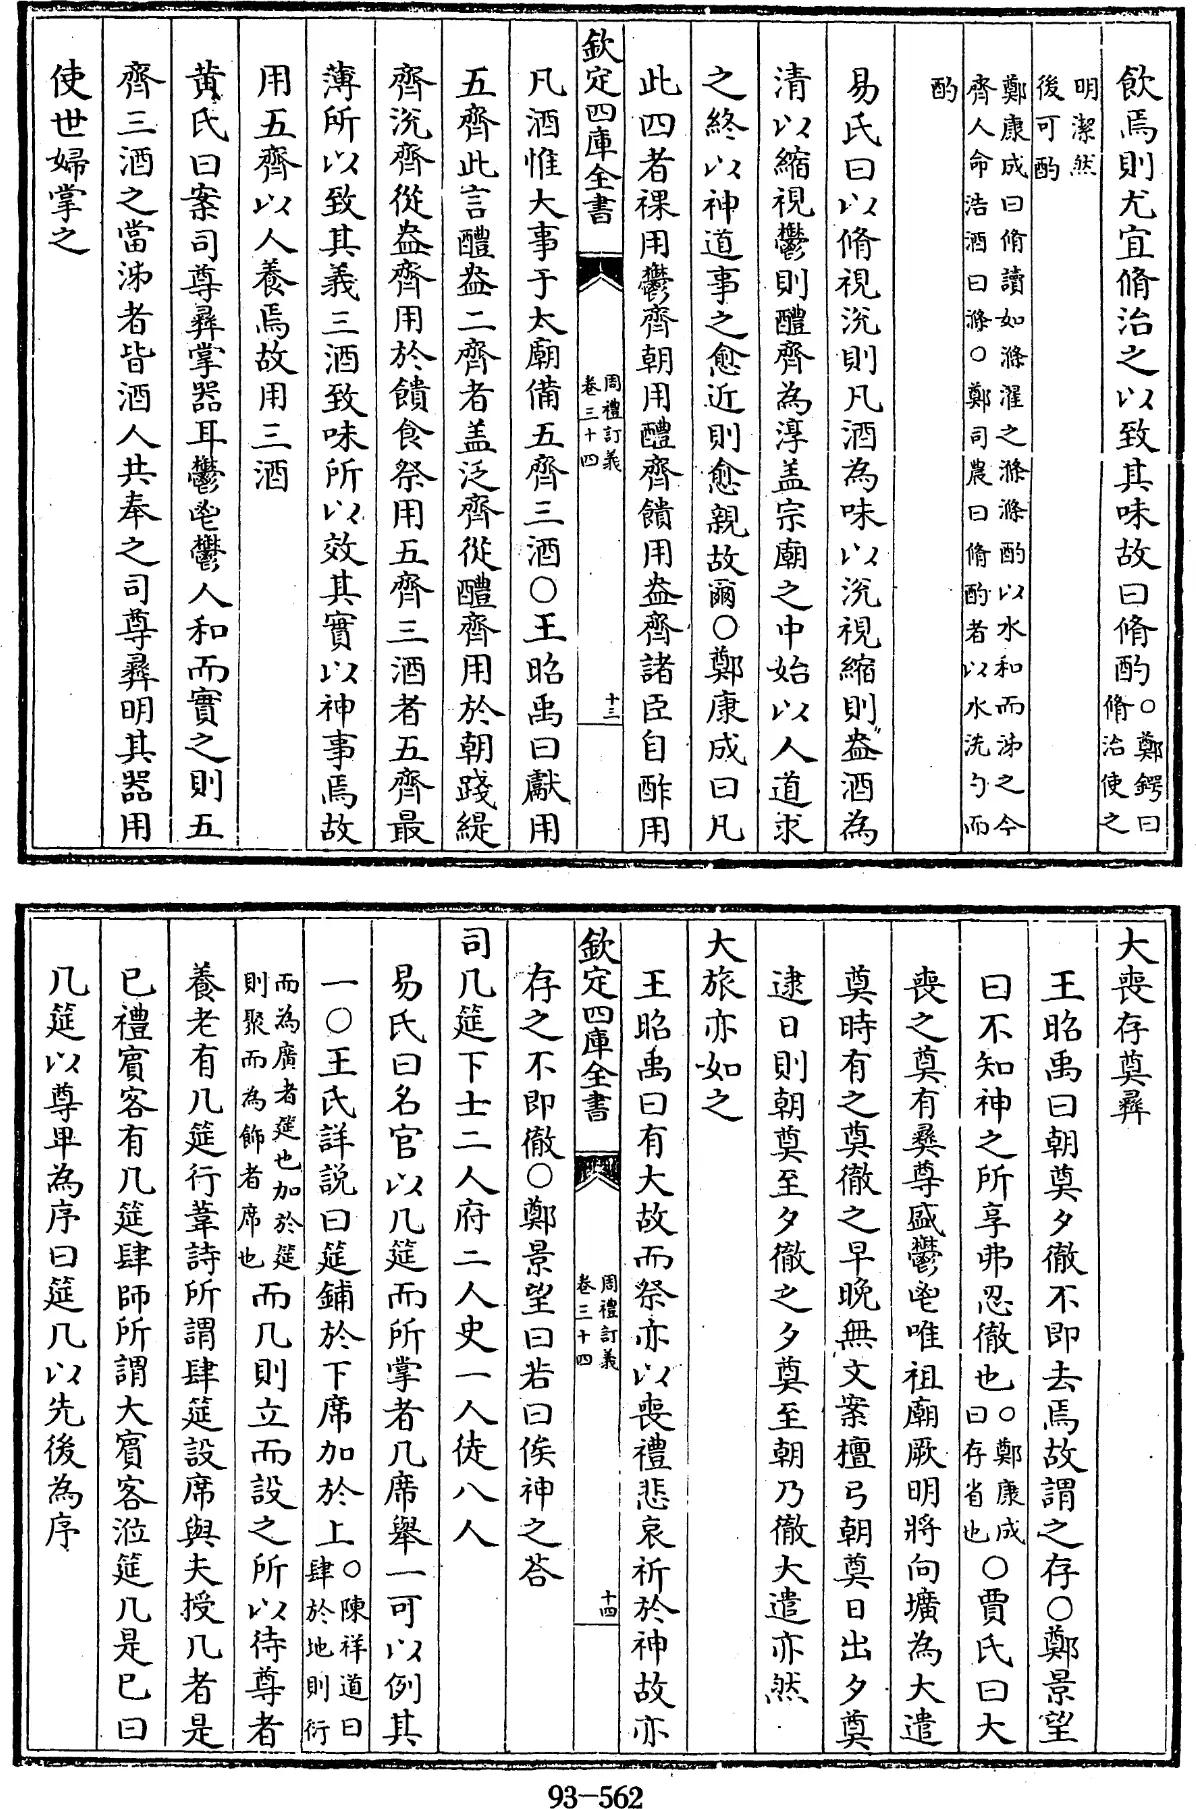 飲焉則尤宜脩治之以致其味故曰脩酌○鄭鍔曰脩治使之
明潔然後可酌
鄭康成曰脩讀如滌濯之滌滌酌以水和而泲之今齊人命浩酒曰滌○鄭司農曰脩酌者以水洗勺而
酌
易氏曰以脩視涗則凡酒為味以涗視縮則盎酒為
清以縮視鬱則醴齊為淳盖宗廟之中始以人道求
之終以神道事之愈近則愈親故爾○鄭康成曰凡
此四者祼用鬱齊朝用醴齊饋用盎齊諸臣自酢用
欽定四庫全書
周禮訂義
卷三十四
十三
凡酒惟大事于太廟備五齊三酒○王昭禹曰獻用
五齊此言醴盎二齊者盖泛齊從醴齊用於朝踐緹
齊沉齊從盎齊用於饋食祭用五齊三酒者五齊最
薄所以致其義三酒致味所以效其實以神事焉故
用五齊以人養焉故用三酒
黃氏曰案司尊彛掌器耳鬱鬯鬱人和而實之則五
齊三酒之當泲者皆酒人共奉之司尊彛明其器用
使世婦掌之
大喪存奠彛
王昭禹曰朝奠夕徹不即去焉故謂之存○鄭景望
曰不知神之所享弗忍徹也○鄭康成曰存省也○賈氏曰大
喪之奠有彛尊盛鬱鬯唯祖廟厥明將向壙為大遣
奠時有之奠徹之早晚無文案檀弓朝奠日出夕奠
逮日則朝奠至夕徹之夕奠至朝乃徹大遣亦然
大旅亦如之
王昭禹曰有大故而祭亦以喪禮悲哀祈於神故亦
欽定四庫全書
周禮訂義
卷三十四
十四
存之不即徹○鄭景望曰若曰俟神之荅
司几筵下士二人府二人史一人徒八人
易氏曰名官以几筵而所掌者几席舉一可以例其
一○王氏詳說曰筵鋪於下席加於上○陳祥道曰肆於地則衍
而為廣者筵也加於筵則聚而為飾者席也而几則立而設之所以待尊者
養老有几筵行葦詩所謂肆筵設席與夫授几者是
已禮賓客有几筵肆師所謂大賓客涖筵几是已曰
几筵以尊卑為序曰筵几以先後為序
93-562